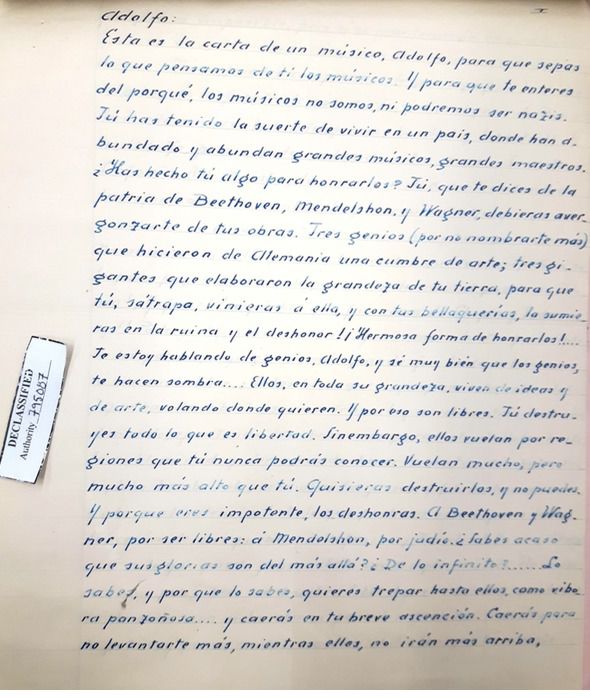 I
Adolfo:
Esta es la carta de un músico, Adolfo, para que sepas
lo que pensamos de tí los músicos. Y para que te enteres
del porqué, los músicos no somos, ni podremos ser nazis.
Tú has tenido la suerte de vivir en un país, donde han a-
bundado y abundan grandes músicos, grandes maestros.
¿Has hecho tú algo para honrarlos? Tú, que te dices de la
patria de Beethoven, Mendelshon, y Wagner, debieras aver-
gonzarte de tus obras. Tres genios (por no nombrarte más)
que hicieron de Alemania una cumbre de arte; tres gi-
gantes que elaboraron la grandeza de tu tierra, para que
tú, sátrapa, vinieras á ella, y con tus bellaquerías, la sumie-
ras en la ruina y el deshonor! ¡Hermosa forma de honrarlos!....
Te estoy hablando de genios, Adolfo, y sé muy bién que los genios,
te hacen sombra.... Ellos, en toda su grandeza, viven de ideas y
de arte, volando donde quieren. Y por eso son libres. Tú destru-
yes todo lo que es libertad. Sinembargo, ellos vuelan por re-
giones que tú nunca podrás conocer. Vuelan mucho, pero
mucho más alto que tú. Quisieras destruirlos, y no puedes.
Y porque eres impotente, los deshonras. A Beethoven y Wag-
ner, por ser libres: á Mendelshon, por judío. ¿Sabes acaso
que sus glorias son del más allá? ¿De lo infinito?...... Lo
sabes, y por que lo sabes, quieres trepar hasta ellos, como vibo
ra ponzoñosa.... y caerás en tu breve ascención. Caerás para
no levantarte más, mientras ellos, no irán más arriba,
DECLASSIFIED
Authority 795087